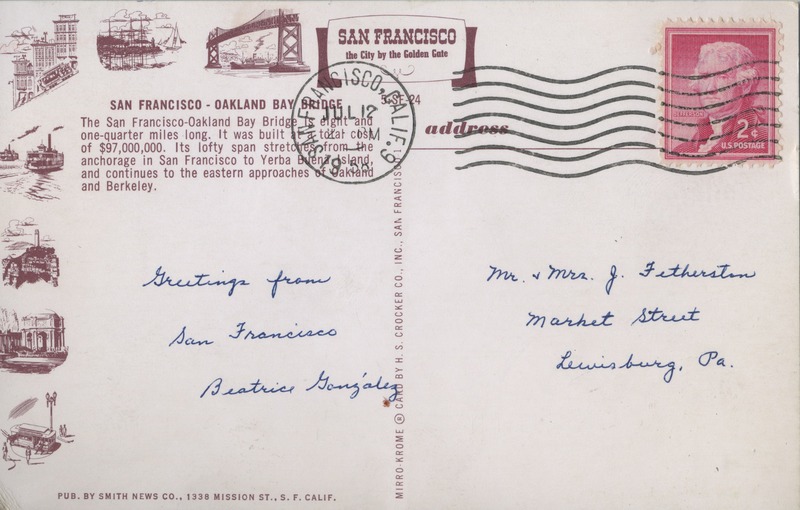 SAN FRANCISCO
the City by the Golden Gate
SAN FRANCISCO - OAKLAND BAY BRIDGE
The San Francisco-Oakland Bay Bridge is eight and
one-quarter miles long. It was built at a total cost
of $97,000,000. Its lofty span stretches from the
anchorage in San Francisco to Yerba Buena Island,
and continues to the eastern approaches of Oakland
and Berkeley.
SAN FRANCISCO, CALIF.
JUL 12
SF-24
address
JEFFERSON
2¢
U.S. POSTAGE
Greetings from
San Francisco
Beatrice González
Mr. & Mrs. J. Fetherston
Market Street
Lewisburg, Pa.
MIRRO-KROME ® CARD BY H. S. CROCKER CO., INC., SAN FRANCISCO
PUB. BY SMITH NEWS CO., 1338 MISSION ST., S. F. CALIF.